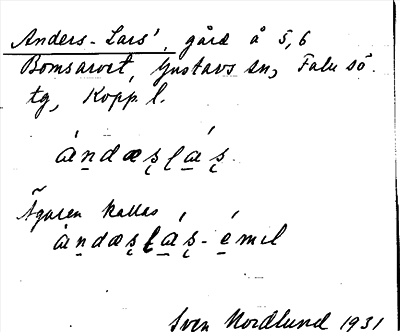 Anders-Lars', gård å 5,6
Bomsarvet, Gustavs sn, Falu sö.
tg, Kopp. l.
àndæșl̨áș.
Ägaren kallas
àndæșl̨áș-émɩl
Sven Nordlund 1931